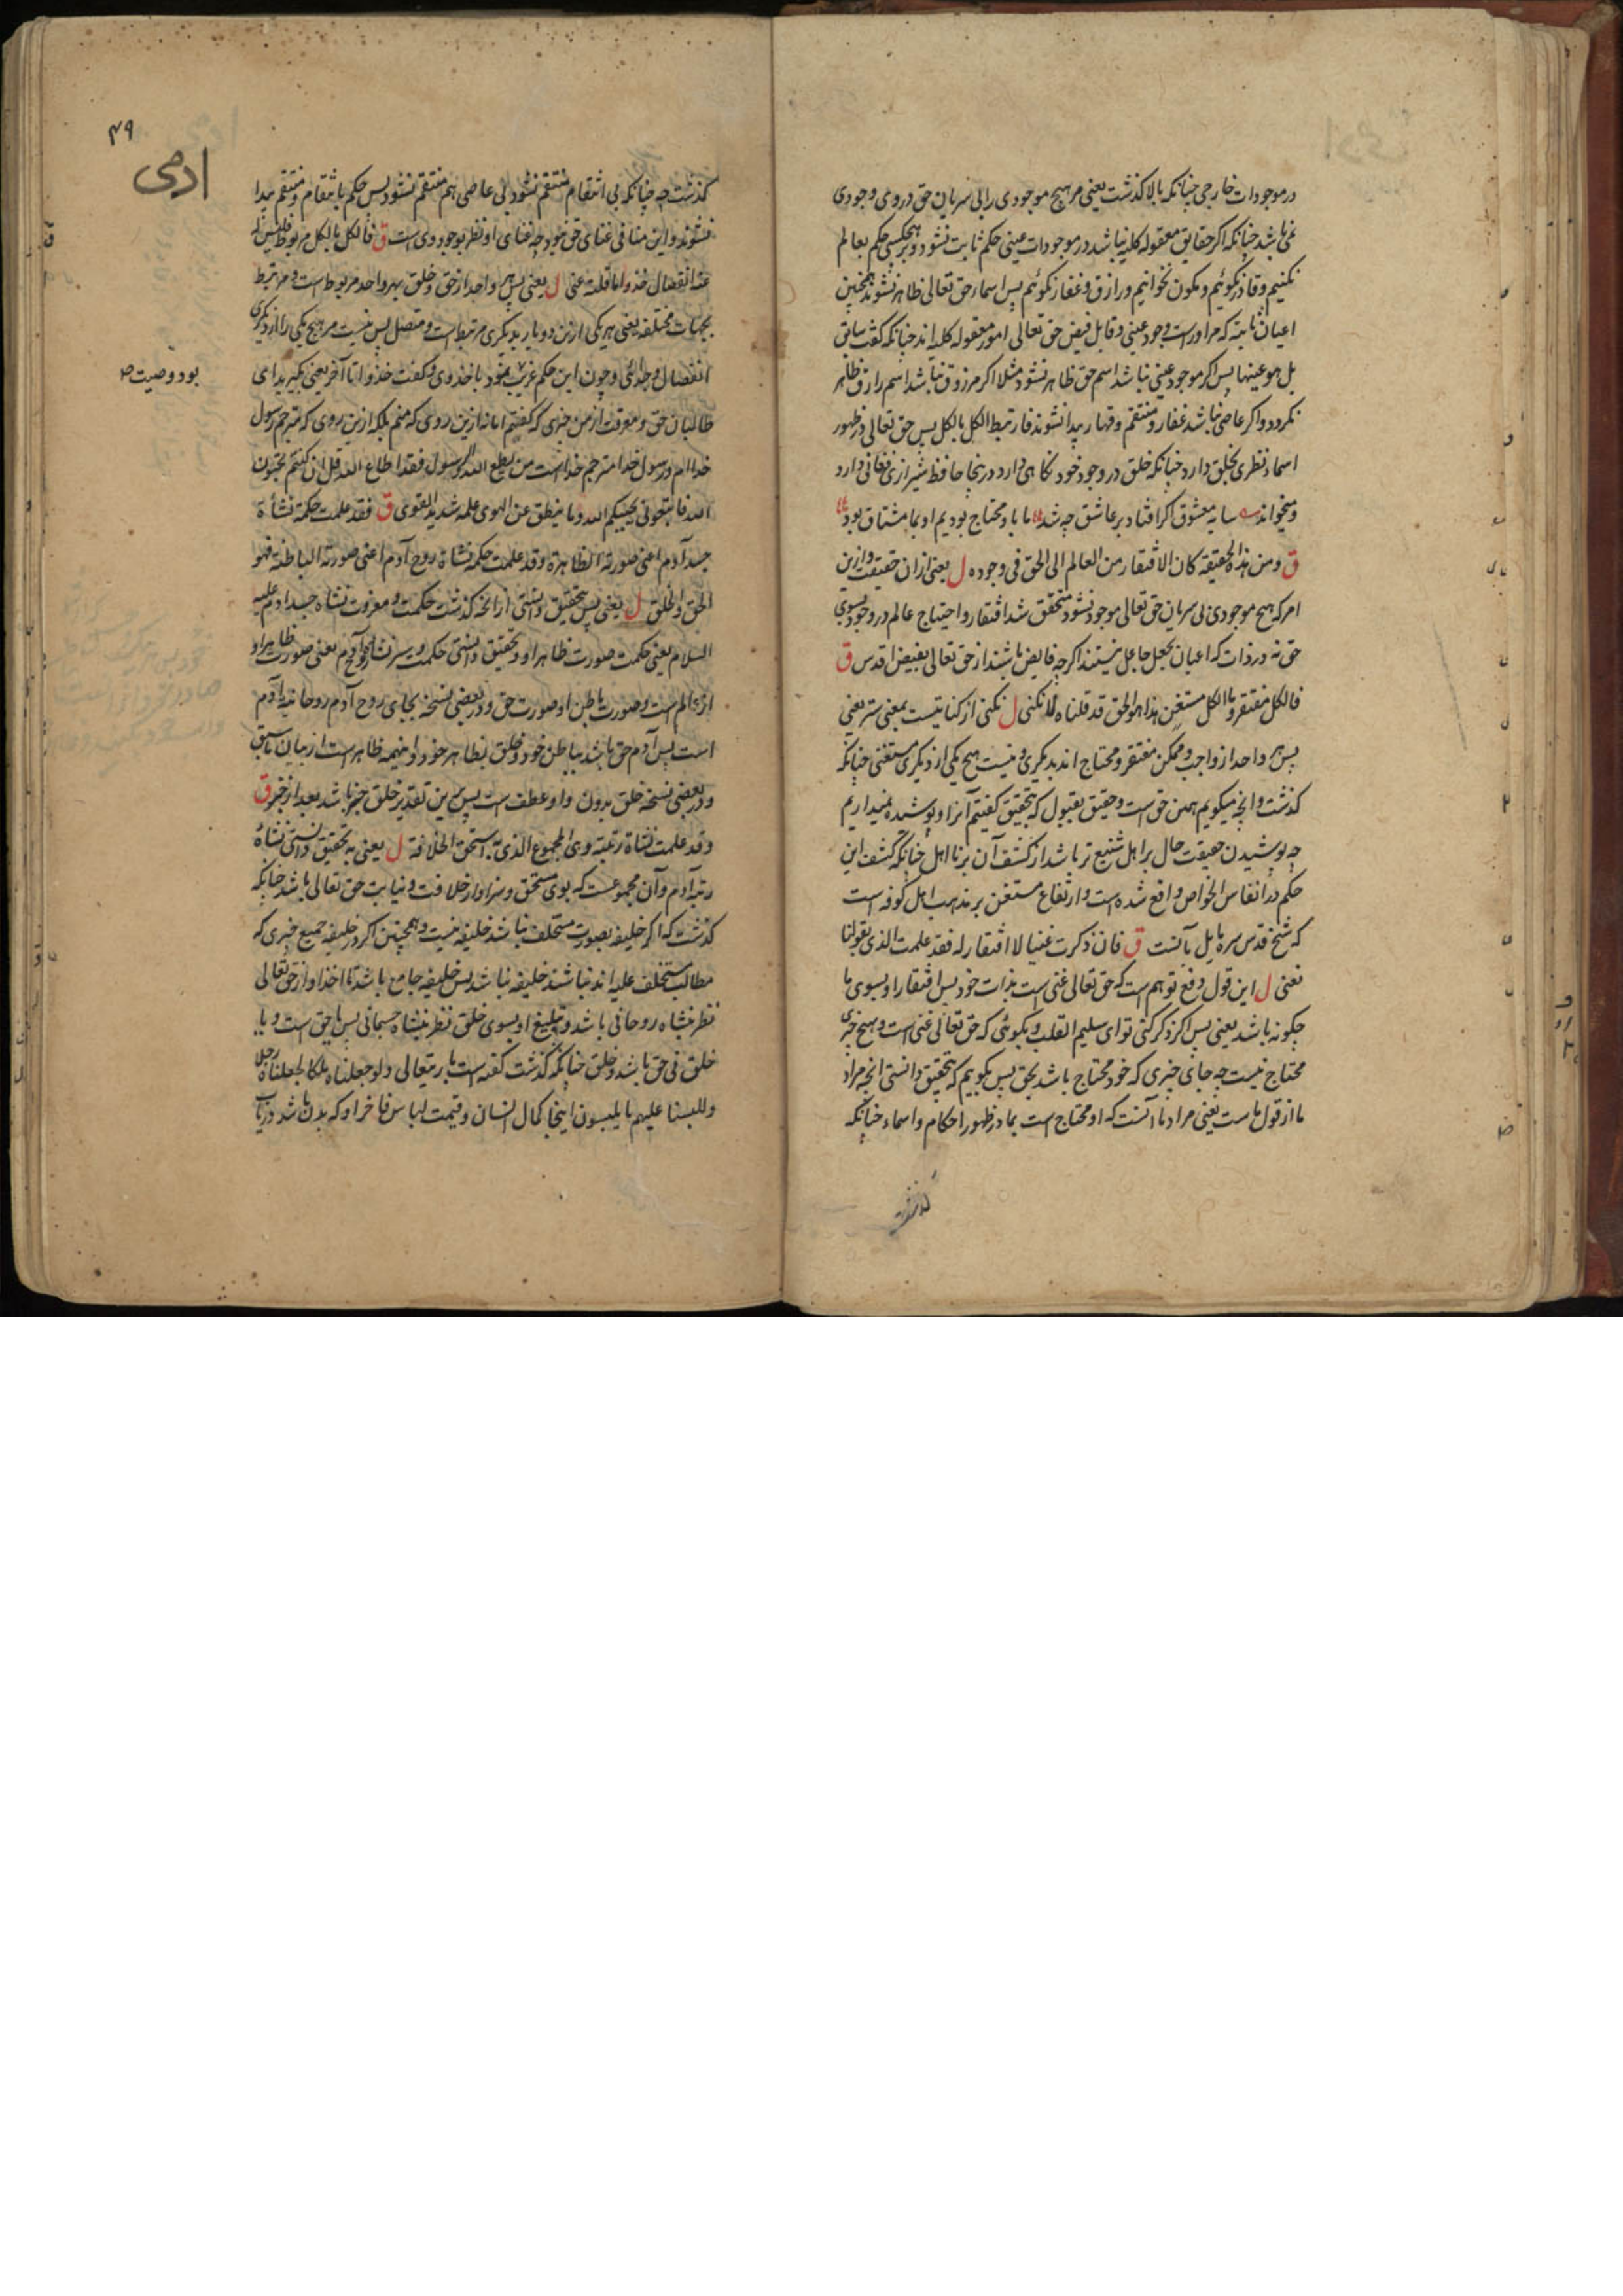 در موجودات خارجی چنانکه بالا گذشت یعنی مر هیچ موجودی را بی سریان حق در وی وجودی
نمی باشد چنانکه اگر حقایق معقوله کلیه نباشد در موجودات عینی حکم ثابت نشود و بر هیچکسی حکم بعالم
نکنیم و قادر نگوئیم و مکون نخوانیم و رازق و غفار نگوئیم پس اسماء حق تعالی ظاهر نشوند همچنین
اعیان ثابته که مر او راست وجود عینی و قابل فیض حق تعالی امور معقوله کلیه اند چنانکه گفت سابق
بل هو عینها پس اگر موجود عینی نباشد اسم حق ظاهر نشود مثلا اگر مرزوق نباشد اسم رازق ظاهر
نگردد و اگر عاصی نباشد غفار و منتقم و قهار پیدا نشوند فارتبط الکل بالکل پس حق تعالی در ظهور
اسماء نظری بخلق دارد چنانکه خلق در وجود خود نگاهی دارد درینجا حافظ شیرازی نغانی دارد
و میخواند سایه معشوق اگر افتاد بر عاشق چه شد ما باو محتاج بودیم او بما مشتاق بود
ق و من هذه الحقیقة کان الافتقار من العالم الی الحق فی وجوده ل یعنی ازان حقیقت و ازین
امر که هیچ موجودی بی سریان حق تعالی موجود نشود متحقق شد افتقار و احتیاج عالم در وجود بسوی
حق نه در ذات که اعیان بجعل جاعل نیستند اگرچه فایض باشند از حق تعالی بفیض اقدس ق
فالکل مفتقر و ما الکل مستغن هذا هو الحق قد قلناه لا نکنی ل نکنی از کنایتست بمعنی ستر یعنی
پس هر واحد از واجب و ممکن مفتقر و محتاج اند بدیگری و نیست هیچ یکی از دیگری مستغنی چنانکه
گذشت و آنچه میگویم همین حق است و حقیق بقبول که بتحقیق گفتیم آنرا و پوشیده نمیداریم
چه پوشیدن حقیقت حال بر اهل شنیع تر باشد از کشف آن بر نااهل چنانکه کشف این
حکم در انفاس الخواص واقع شده است و ارتفاع مستغن بر مذهب اهل کوفه است
که شیخ قدس سره مایل بآنست ق فان ذکرت غنیا لا افتقار له فقد علمت الذی بقولنا
نعنی ل این قول دفع توهم است که حق تعالی غنی است بذات خود پس افتقار او بسوی ما
چگونه باشد یعنی پس اگر ذکر کنی تو ای سلیم القلب و بگوئی که حق تعالی غنی است و بهیچ چیزی
محتاج نیست چه جای چیزی که خود محتاج باشد بحق پس بگوییم که بتحقیق دانستی آنچه مراد
ما از قول ماست یعنی مراد ما آنست که او محتاج است بما در ظهور احکام و اسماء چنانکه
گذشت
۴۹
ادمی
گذشت چه چنانکه بی انتقام منتقم نشود بی عاصی هم منتقم نشود پس حکم بانتقام و منتقم پیدا
نشوند و این منافی غنای حق نبود چه غنای او نظر بوجود وی است ق فالکل بالکل مربوط فلیس له
عنه انفصال خذوا ما قلته عنی ل یعنی پس هر واحد از حق و خلق بهر واحد مربوط است و مرتبط
بجهات مختلفه یعنی هر یکی ازین دو باید دیگری مرتبط است و متصل پس نیست مر هیچ یکی را از دیگری
انفصال و جدائی و چون این حکم غریب بود باخذ وی و گفت خذوا تا آخر یعنی بگیرید ای
بود وصیت
طالبان حق و معرفت از من چیزی که گفتم اما نه ازین روی که منم بلکه ازین روی که مترجم رسول
خدا ام و رسول خدا مترجم خداست من یطع الله و الرسول فقد اطاع الله قل ان کنتم تحبون
الله فاتبعونی یحببکم الله و ما ینطق عن الهوی علمه شدید القوی ق فقد علمت حکمة نشأة
جسد آدم اعنی صورته الظاهرة و قد علمت حکمة نشاة روح آدم اعنی صورته الباطنة فهو
الحق و الخلق ل یعنی پس بتحقیق دانستی از آنچه گذشت حکمت و معرفت نشاه جسد آدم علیه
السلام یعنی حکمت صورت ظاهر او و بتحقیق دانستی حکمت و سر نشاه روح آدم یعنی صورت ظاهر او
از عالم است و صورت باطن او صورت حق و در بعضی نسخه بجای روح آدم روحانیه آدم
است پس آدم حق باشد بباطن خود و خلق بظاهر خود و اینهمه ظاهر است از بیان سابق
و در بعضی نسخه خلق بدون واو عطف است پس برین تقدیر خلق خبر باشد بعد از خبر ق
و قد علمت نشاة رتبته و هی المجموع الذی به استحق الخلافة ل یعنی به تحقیق دانستی نشاة
رتبه آدم و آن مجموعست که بوی مستحق و سزاوار خلافت و نیابت حق تعالی باشد چنانکه
گذشت که اگر خلیفه بصورت مستخلف نباشد خلیفه نیست و همچنین اگر در خلیفه جمیع چیزی که
مطالب مستخلف علیه اند نباشند خلیفه نباشد پس خلیفه جامع باشد تا اخذ او از حق تعالی
نظر بنشاه روحانی باشد و تبلیغ او بسوی خلق نظر بنشاه جسمانی پس با حق است و با
خلق فی حق باشد و خلق چنانکه گذشت گفته است باریتعالی و لو جعلناه ملکا لجعلناه رجلا
و للبسنا علیهم ما یلبسون اینجا کمال انسان و قیمت لباس فاخر او که بدن باشد دریاب